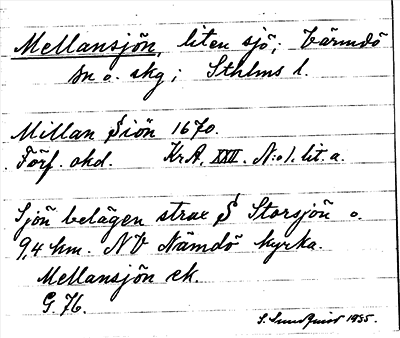 Mellansjön, liten sjö; Värmdö
sn o. skg; Sthlms l.
Millan Siön 1670.
Förf. okd. KrA. XXII. N:o 1. lit. a.
Sjön belägen strax S Storsjön o.
9,4 km. NV Nämdö kyrka.
Mellansjön ek.
G. 76.
S. Lundquist 1935.